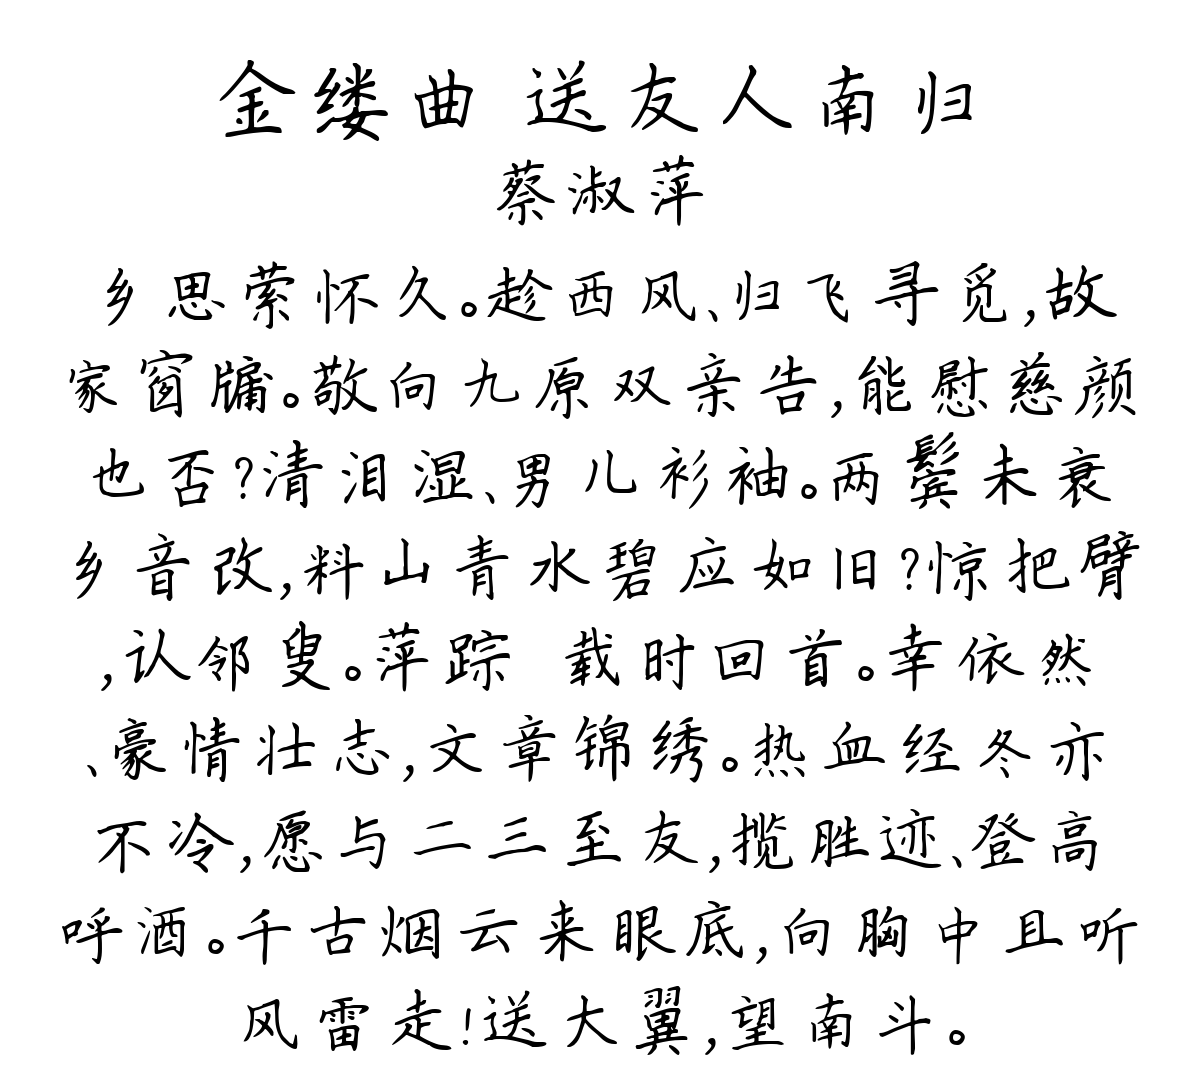 金缕曲 送友人南归
蔡淑萍
乡思萦怀久。趁西风、归飞寻觅,故
家窗牖。敬向九原双亲告,能慰慈颜
也否?清泪湿、男儿衫袖。两鬓未衰
乡音改,料山青水碧应如旧?惊把臂
,认邻叟。萍踪 载时回首。幸依然
、豪情壮志,文章锦绣。热血经冬亦
不冷,愿与二三至友,揽胜迹、登高
呼酒。千古烟云来眼底,向胸中且听
风雷走!送大翼,望南斗。